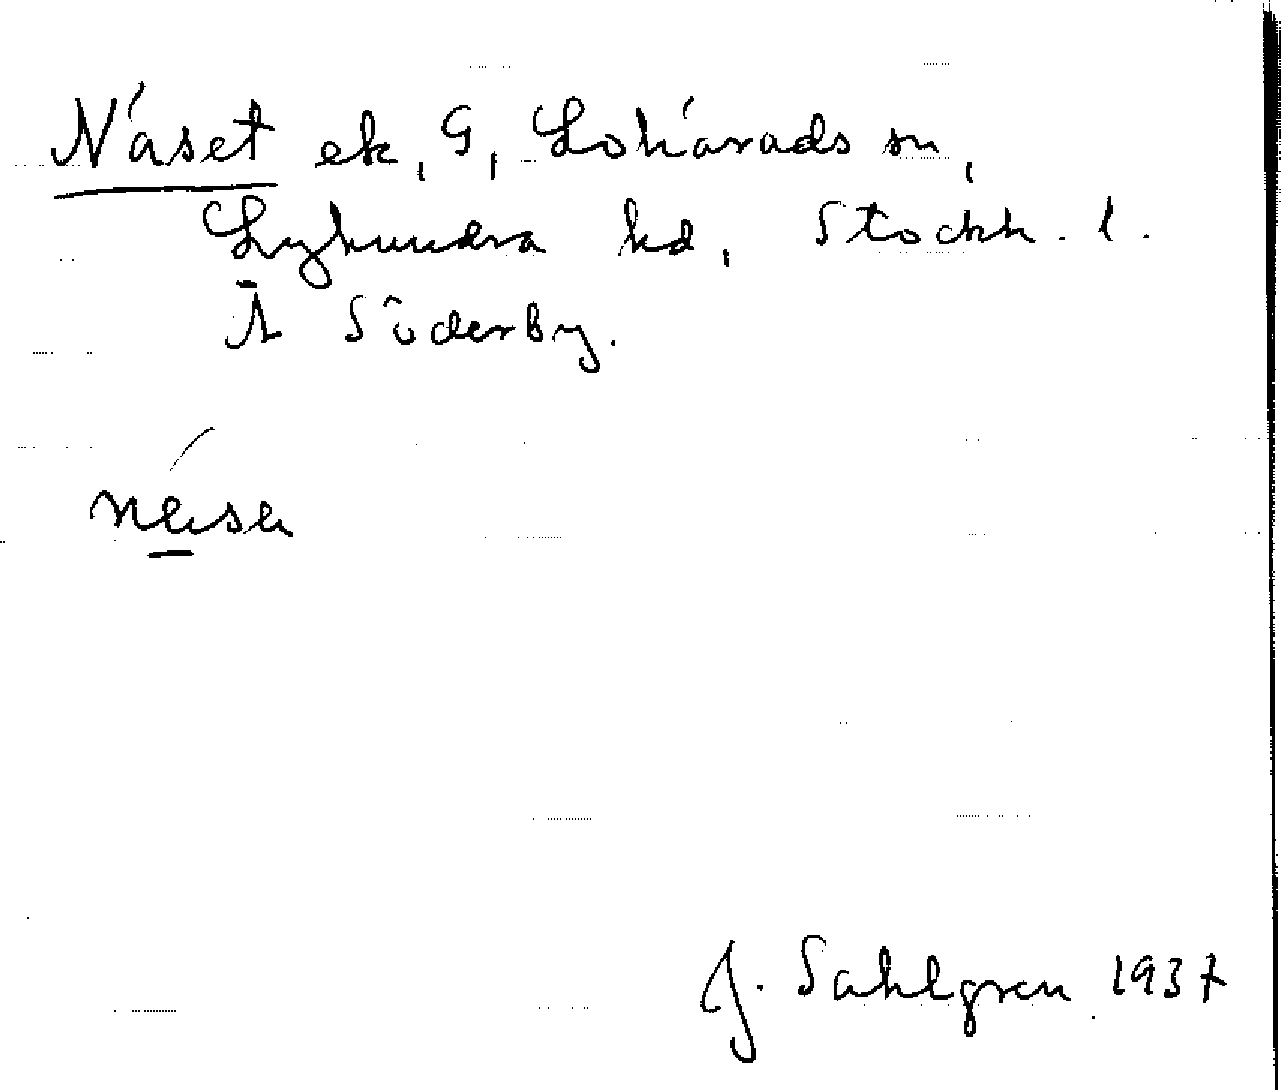 Näset ek, G, Lohärads sn,
Lyhundra hd, Stockh. l.
Å Söderby.
J. Sahlgren 1937